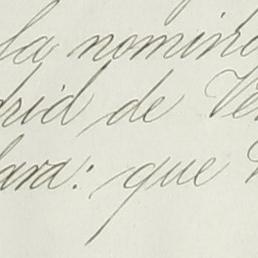 la nomin
drid de Ve
lara: que